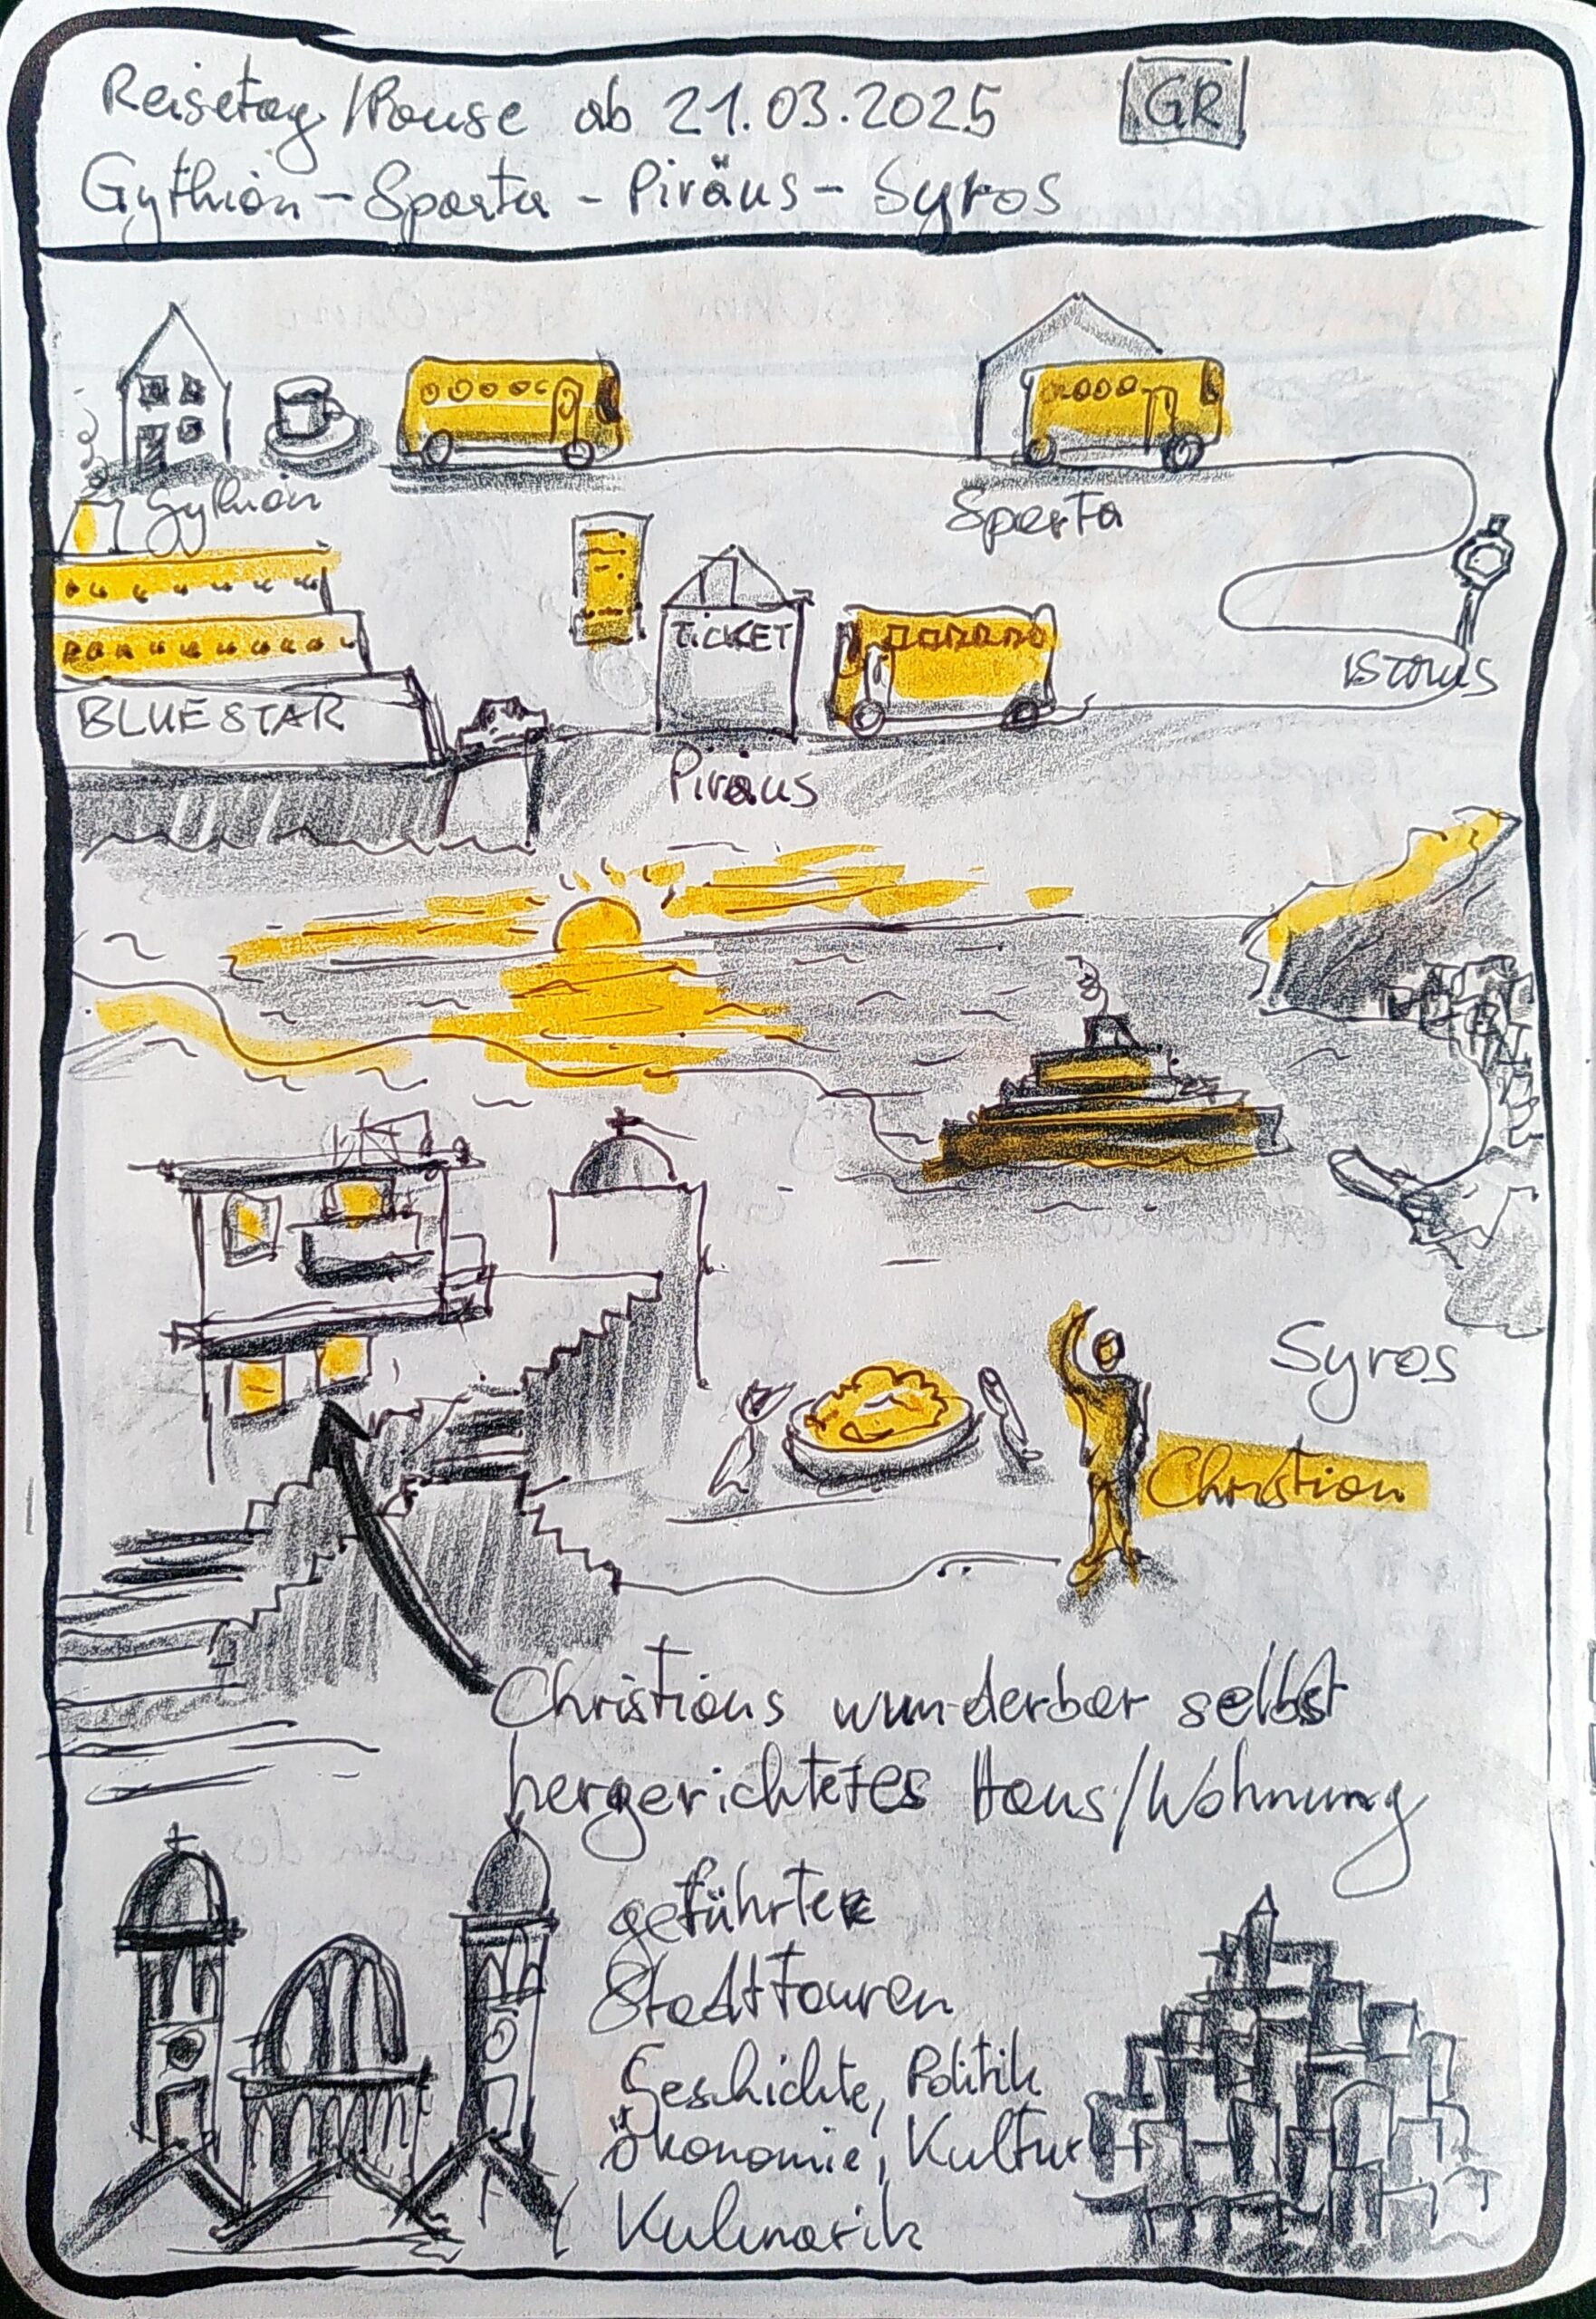 Reisetag/Pause ab 21.03.2025 GR
Gythion – Sparta – Piräus – Syros
Gythion
Sparta
TICKET
ISTMUS
BLUE STAR
Piräus
Syros
Christian
Christians wunderbar selbst
hergerichtetes Haus/Wohnung
geführte
Stadttouren
Geschichte, Politik
Ökonomie, Kultur
Kulinarik